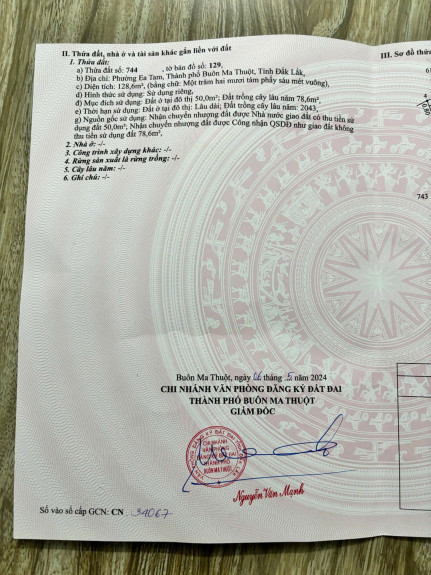 II. Thửa đất, nhà ở và tài sản khác gắn liền với đất
1. Thửa đất:
a) Thửa đất số: 744 , tờ bản đồ số: 129,
b) Địa chỉ: Phường Ea Tam, Thành phố Buôn Ma Thuột, Tỉnh Đắk Lắk,
c) Diện tích: 128,6m², (bằng chữ: Một trăm hai mươi tám phẩy sáu mét vuông),
d) Hình thức sử dụng: Sử dụng riêng,
đ) Mục đích sử dụng: Đất ở tại đô thị 50,0m²; Đất trồng cây lâu năm 78,6m²,
e) Thời hạn sử dụng: Đất ở tại đô thị: Lâu dài; Đất trồng cây lâu năm: 2043,
g) Nguồn gốc sử dụng: Nhận chuyển nhượng đất được Nhà nước giao đất có thu tiền sử
dụng đất 50,0m²; Nhận chuyển nhượng đất được Công nhận QSDĐ như giao đất không
thu tiền sử dụng đất 78,6m²,
2. Nhà ở: -/-
3. Công trình xây dựng khác: -/-
4. Rừng sản xuất là rừng trồng: -/-
5. Cây lâu năm: -/-
6. Ghi chú: -/-
III. Sơ đồ thửa
743
Buôn Ma Thuột, ngày 06 tháng 5 năm 2024
CHI NHÁNH VĂN PHÒNG ĐĂNG KÝ ĐẤT ĐAI
THÀNH PHỐ BUÔN MA THUỘT
GIÁM ĐỐC
CHI NHÁNH
VĂN PHÒNG
ĐĂNG KÝ ĐẤT ĐAI
THÀNH PHỐ
BUÔN MA THUỘT
Nguyễn Văn Mạnh
Số vào sổ cấp GCN: CN 34067